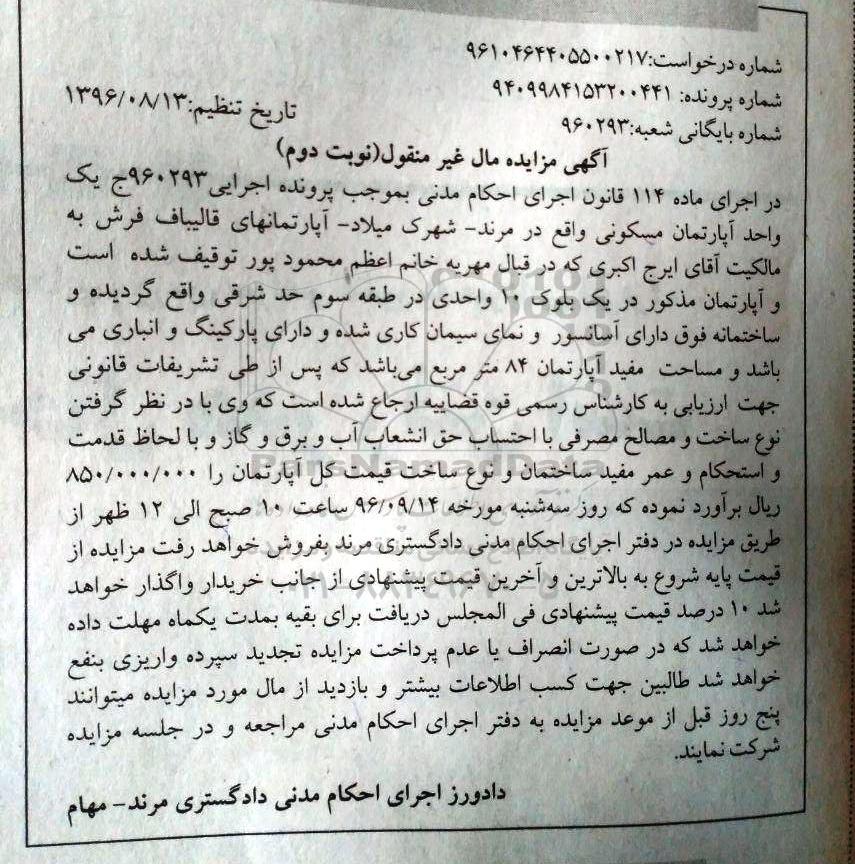 شماره درخواست:۹۶۱۰۴۶۴۴۰۵۵۰۰۲۱۷
شماره پرونده: ۹۴۰۹۹۸۴۱۵۳۲۰۰۴۴۱
تاریخ تنظیم:۱۳۹۶/۰۸/۱۳
شماره بایگانی شعبه:۹۶۰۲۹۳
آگهی مزایده مال غیر منقول(نوبت دوم)
در اجرای ماده ۱۱۴ قانون اجرای احکام مدنی بموجب پرونده اجرایی۹۶۰۲۹۳ج یک
واحد آپارتمان مسکونی واقع در مرند- شهرک میلاد- آپارتمانهای قالیباف فرش به
مالکیت آقای ایرج اکبری که در قبال مهریه خانم اعظم محمود پور توقیف شده است
و آپارتمان مذکور در یک بلوک ۱۰ واحدی در طبقه سوم حد شرقی واقع گردیده و
ساختمانه فوق دارای آسانسور و نمای سیمان کاری شده و دارای پارکینگ و انباری می
باشد و مساحت مفید آپارتمان ۸۴ متر مربع می‌باشد که پس از طی تشریفات قانونی
جهت ارزیابی به کارشناس رسمی قوه قضاییه ارجاع شده است که وی با در نظر گرفتن
نوع ساخت و مصالح مصرفی با احتساب حق انشعاب آب و برق و گاز و با لحاظ قدمت
و استحکام و عمر مفید ساختمان و نوع ساخت قیمت کل آپارتمان را ۸۵۰/۰۰۰/۰۰۰
ریال برآورد نموده که روز سه‌شنبه مورخه ۹۶/۰۹/۱۴ ساعت ۱۰ صبح الی ۱۲ ظهر از
طریق مزایده در دفتر اجرای احکام مدنی دادگستری مرند بفروش خواهد رفت مزایده از
قیمت پایه شروع به بالاترین و آخرین قیمت پیشنهادی از جانب خریدار واگذار خواهد
شد ۱۰ درصد قیمت پیشنهادی فی المجلس دریافت برای بقیه بمدت یکماه مهلت داده
خواهد شد که در صورت انصراف یا عدم پرداخت مزایده تجدید سپرده واریزی بنفع
خواهد شد طالبین جهت کسب اطلاعات بیشتر و بازدید از مال مورد مزایده میتوانند
پنج روز قبل از موعد مزایده به دفتر اجرای احکام مدنی مراجعه و در جلسه مزایده
شرکت نمایند.
دادورز اجرای احکام مدنی دادگستری مرند- مهام